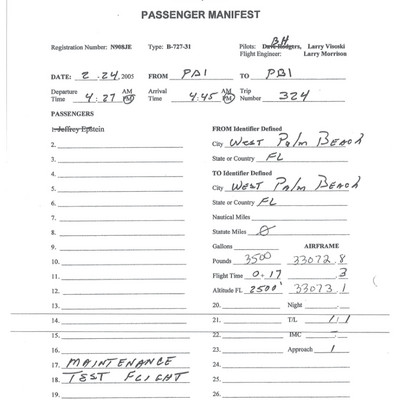 PASSENGER MANIFEST
BH
Registration Number: N908JE Type: B-727-31 Pilots: Dave Rodgers, Larry Visoski
Flight Engineer: Larry Morrison
DATE: 2.24,2005 FROM PBI TO PBI
Departure Time 4:27 AM PM Arrival Time 4:45 AM PM Trip Number 324
PASSENGERS
1. Jeffrey Epstein FROM Identifier Defined
2. City WEST PALM BEACH
3. State or Country FL
4. TO Identifier Defined
5. City WEST PALM BEACH
6. State or Country FL
7. Nautical Miles
8. Statute Miles 0
9. Gallons AIRFRAME
10. Pounds 3500 33072.8
11. Flight Time 0.17 .3
12. Altitude FL 2500' 33073.1
13. 20. Night
14. 21. T/L 1/1
15. 22. IMC
16. 23. Approach 1
17. MAINTENANCE 24.
18. TEST FLIGHT 25.
19. 26.